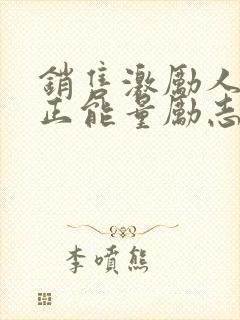 銷售激勵人
正能量勵志
李噴熊